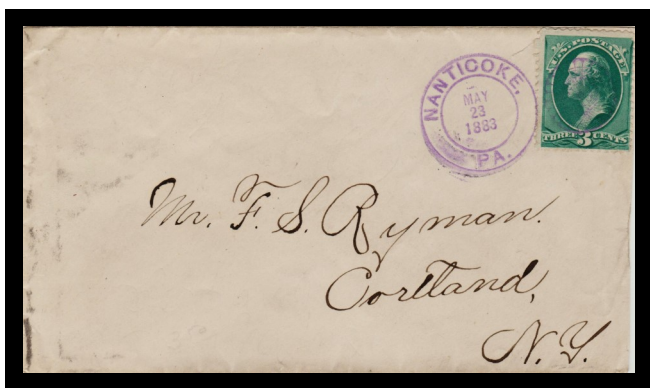 NANTICOKE,
MAY
23
1883
PA.
U.S. POSTAGE
THREE 3 CENTS
Mr. F. S. Ryman.
Cortland,
N.Y.